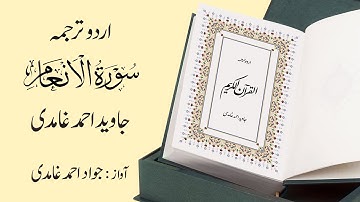 اردو ترجمہ
سُوْرَةُ الْاَنْعَام
جاوید احمد غامدی
آواز : جواد احمد غامدی
اردو ترجمہ
القرآن الکریم
جاوید احمد غامدی